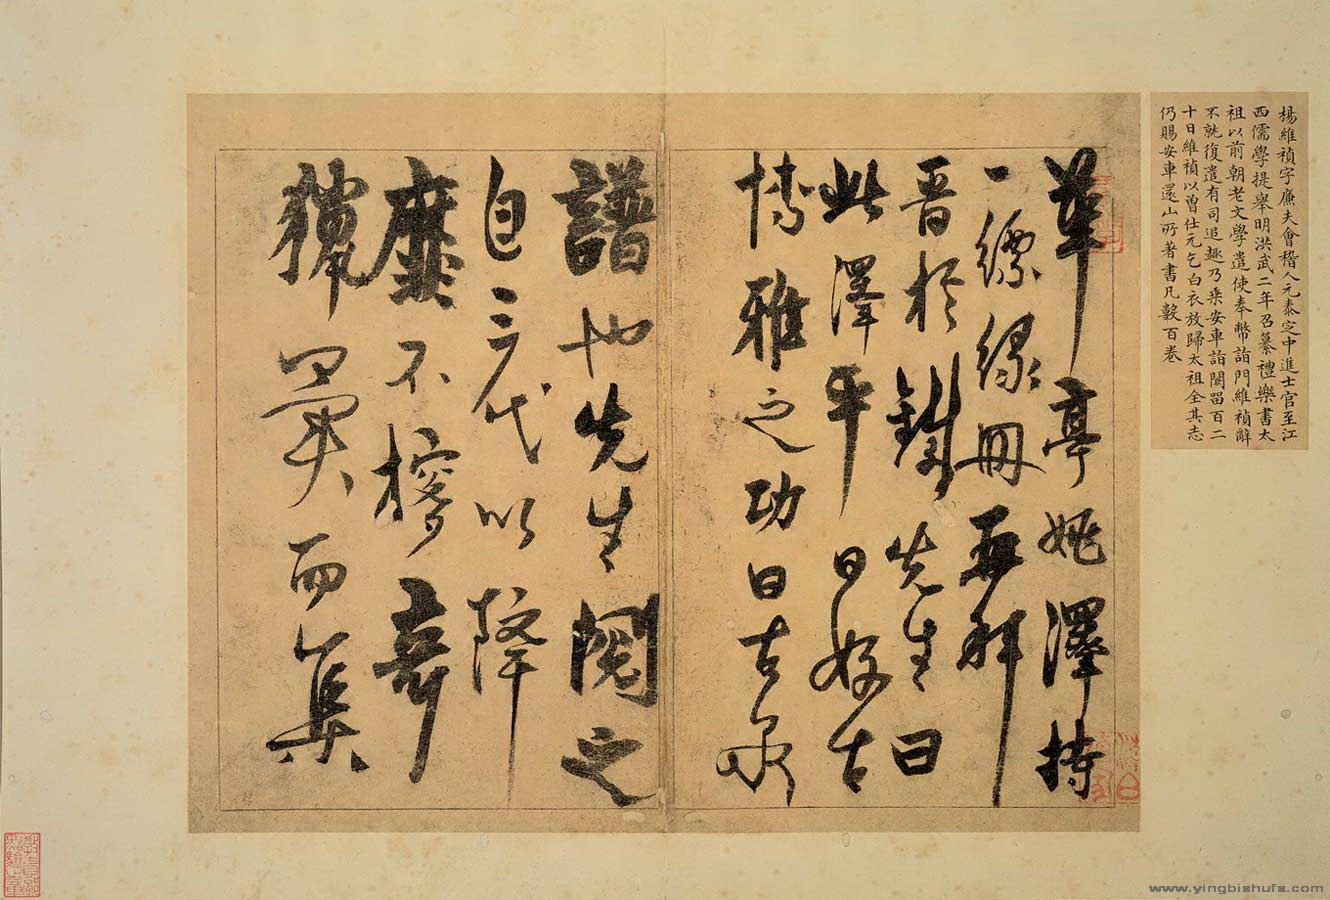 楊維禎字廉夫會稽人元泰定中進士官至江
西儒學提舉明洪武二年召纂禮樂書太
祖以前朝老文學遣使奉幣詣門維禎辭
不就復遣有司追趣乃乘安車詣闕留百二
十日維禎以曾仕元乞白衣放歸太祖全其志
仍賜安車還山所著書凡數百卷
華亭姚澤持
一縹冊再拜
晉於鐵先生曰
此澤平日好古
博雅之功曰古泉
譜也先生閱之
自三代以降
靡不搜奇
獵異而集
www.yingbishufa.com